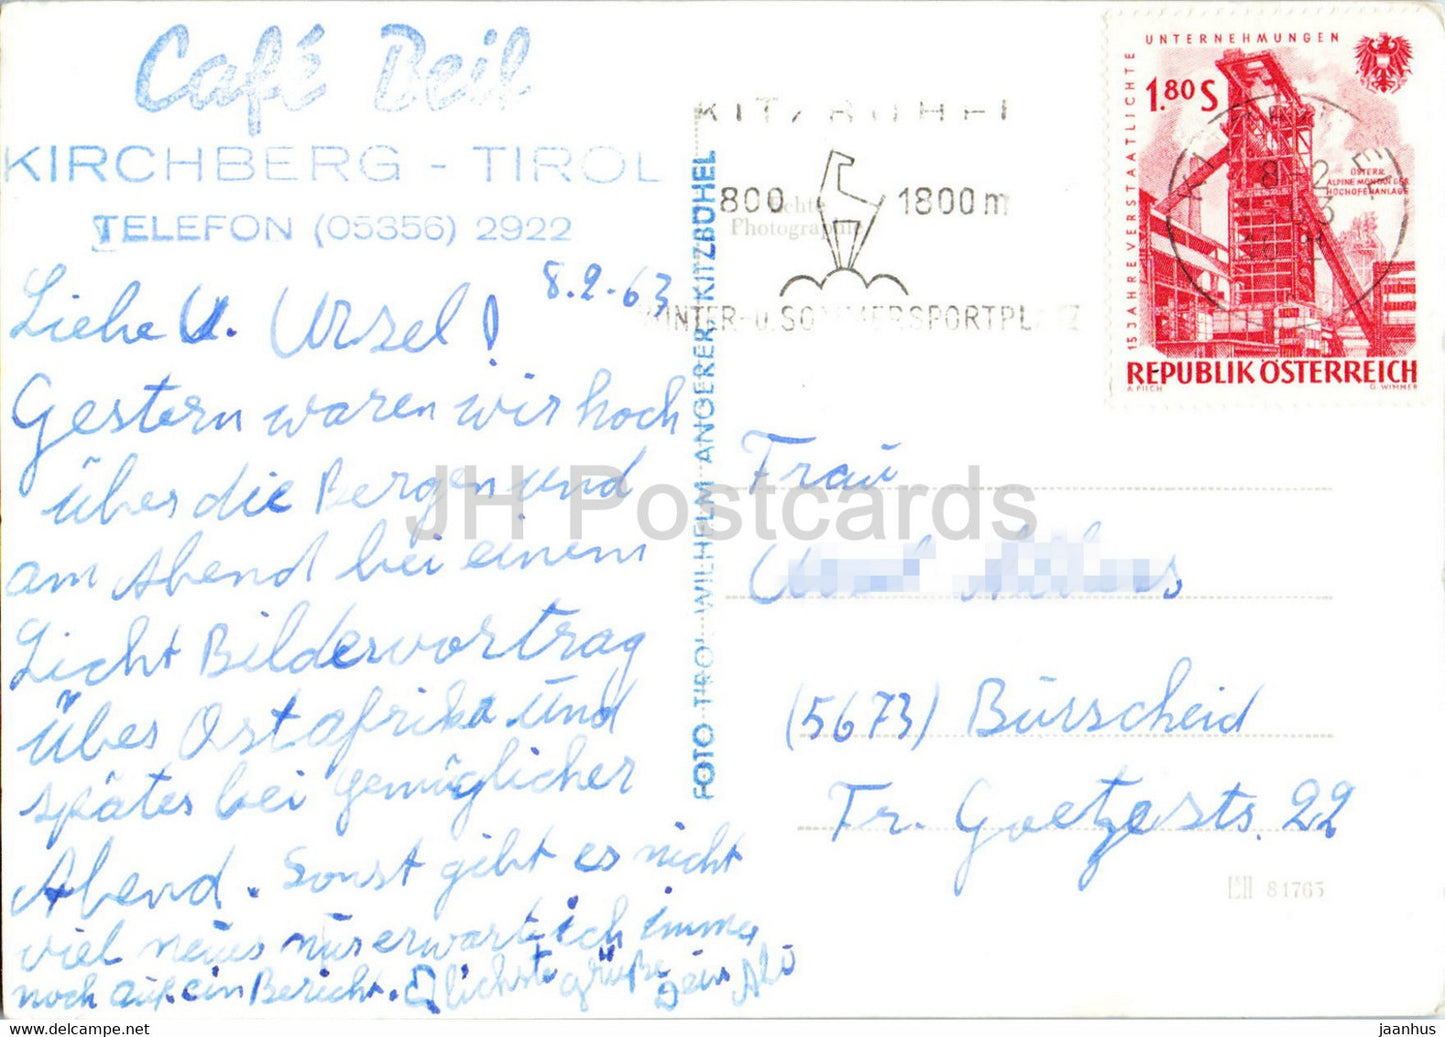 Café Beil
KIRCHBERG - TIROL
TELEFON (05356) 2922
8.2-63
Liebe U. Ursel!
Gestern waren wir hoch
über die Bergen und
am Abend bei einem
Licht Bildervortrag
über Ostafrika und
später bei gemüglicher
Abend. Sonst gibt es nicht
viel neues nur erwarte ich immer
noch auf ein Bericht. Herzlichste grüße
Dein
FOTO TIROL WILHELM ANGERER, KITZBÜHEL
Echte
Photographie
KITZBÜHEL
800 1800m
WINTER-U.SOMMERSPORTPLATZ
UNTERNEHMUNGEN
15 JAHRE VERSTAATLICHTE
1.80 S
ÖSTERR.
ALPINE MONTANGES.
HOCHOFENANLAGE
REPUBLIK ÖSTERREICH
A.PILCH G.WIMMER
8-2
63
Frau
(5673) Burscheid
Fr. Goetzestr. 22
81763
JH Postcards
www.delcampe.net
jaanhus